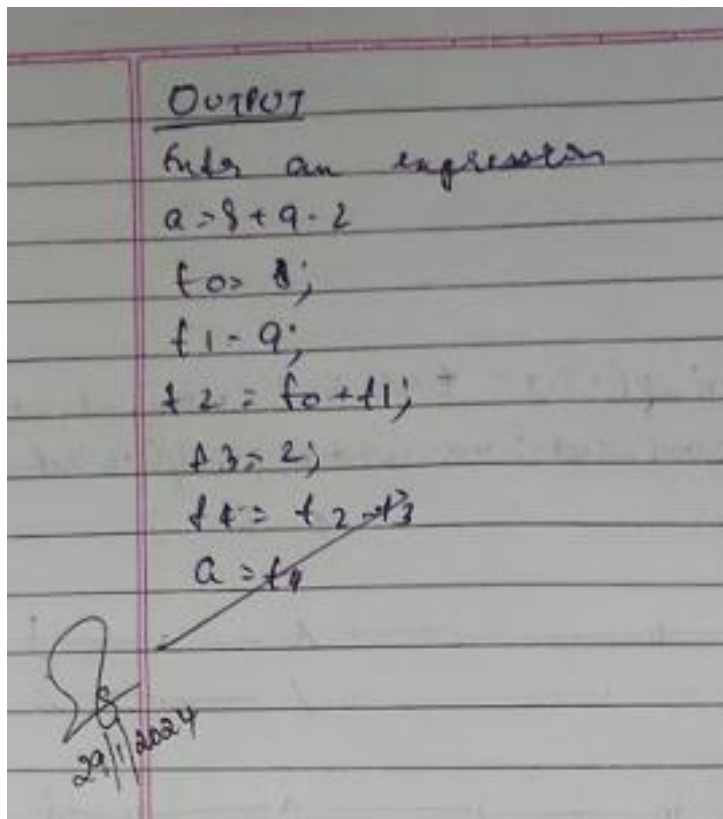 OUTPUT
Enter an expression
a=8+9-2
t0= 8;
t1=9;
t2=t0+t1;
t3=2;
t4=t2-t3
a=t4
29/1/2024